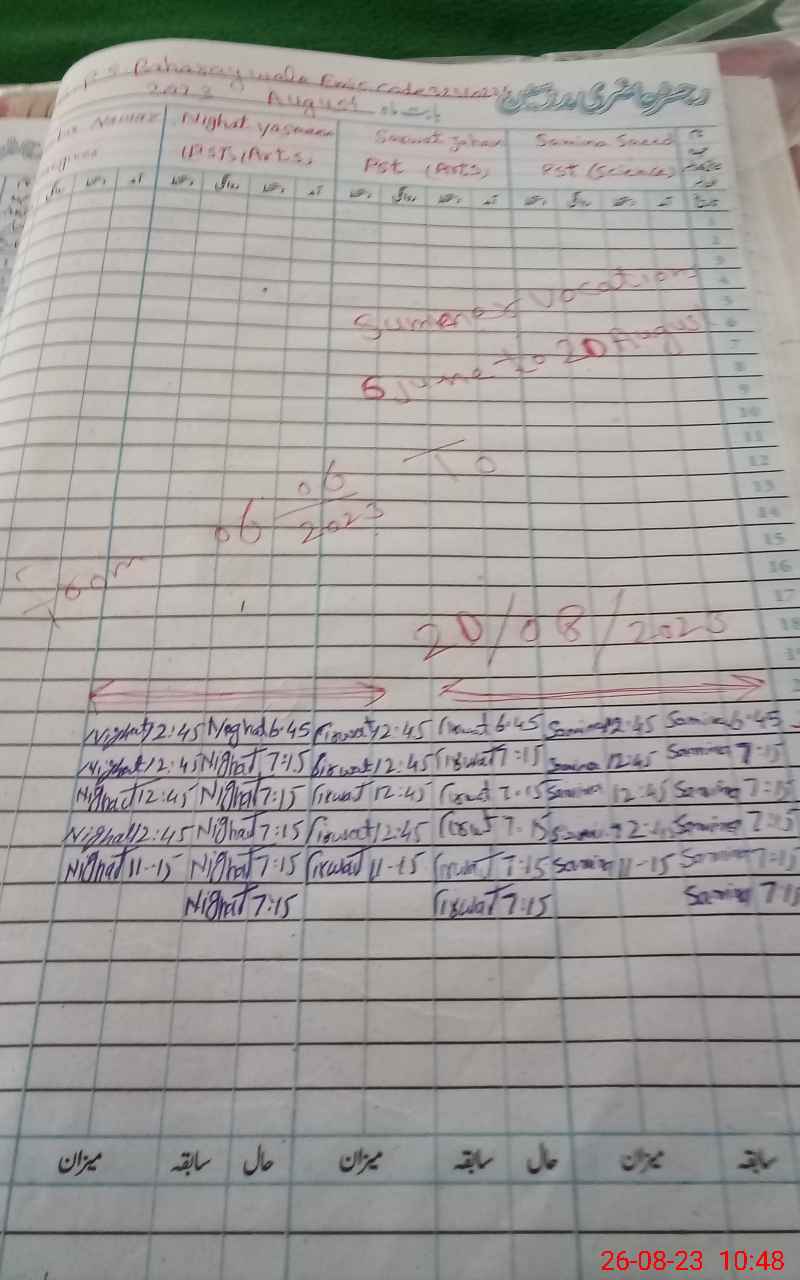 2023 August بابت ماہ رجسٹر حاضری مدرسین
Nighat Yasmeen Sarwat Jahan Samina Saeed
(PST, Arts) Pst (Arts) PST (Science)
1
2
3
4
5
6
7
8
9
10
11
12
13
14
15
16
17
18
Sumener Vocation
6 June to 20 August
06 06/2023 To
20/08/2023
Nighat 12:45 Neghat 6:45 Sirwat 12:45 Sirwat 6:45 Samina 12:45 Samina 6:45
Nighat 12:45 Nighat 7:15 Sirwat 12:45 Sirwat 7:15 Samina 12:45 Samina 7:15
Nighat 12:45 Nighat 7:15 Sirwat 12:45 Sirwat 7:15 Samina 12:45 Samina 7:15
Nighat 12:45 Nighat 7:15 Sirwat 12:45 Sirwat 7:15 Samina 12:45 Samina 7:15
Nighat 11-15 Nighat 7:15 Sirwat 11-15 Sirwat 7:15 Samina 11-15 Samina 7:15
Nighat 7:15 Sirwat 7:15 Samina 7:15
سابقہ میزان حال سابقہ میزان حال سابقہ میزان
26-08-23 10:48